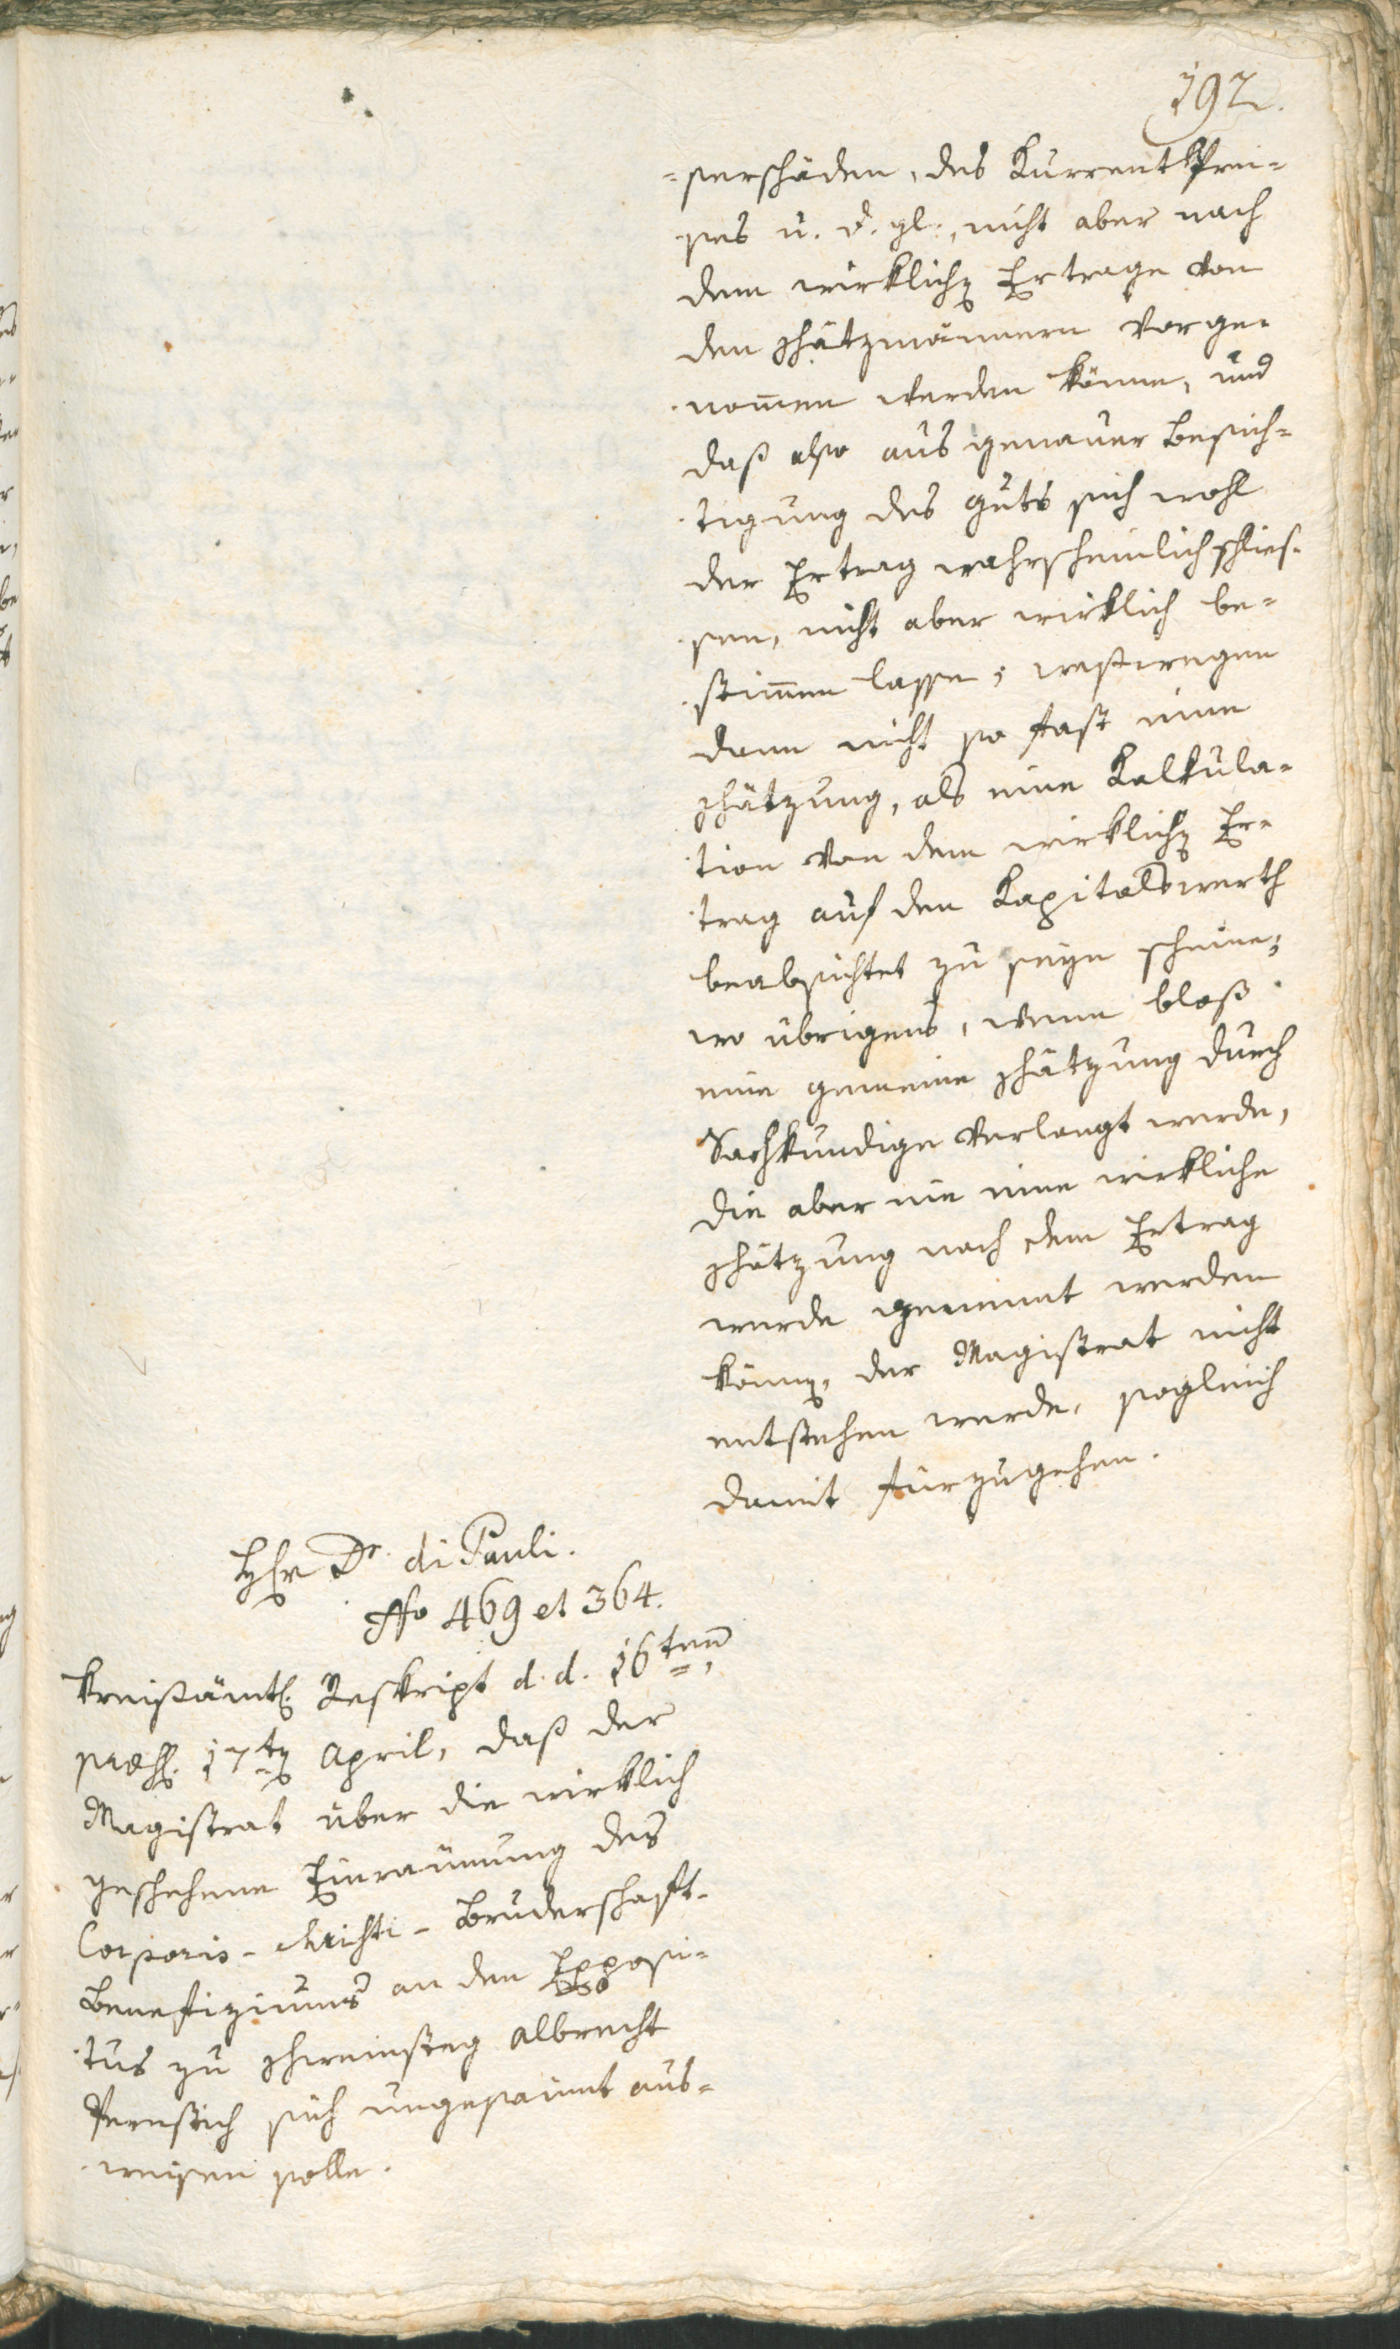 192.
-serschäden, des Kurrent Prei-
ses u. d. gl., nicht aber nach
dem wirklichen Ertrage von
den Schätzmännern vorge-
nommen werden könne, und
daß also aus genauer Besich-
tigung des Guts sich wohl
der Ertrag wahrscheinlich schlies-
sen, nicht aber wirklich be-
stimmen lasse; weßwegen
dann nicht so fast eine
Schätzung, als eine Kalkula-
tion von dem wirklichen Er-
trag auf den Kapitalswerth
beabsichtet zu seyn scheine;
wo übrigens, wenn bloß
eine gemeine Schätzung durch
Sachkundige verlangt werde,
die aber nie eine wirkliche
Schätzung nach dem Ertrag
werde genennt werden
können, der Magistrat nicht
entstehen werde, sogleich
damit fürzugehen.
Hhr Dr. di Pauli.
ffo 469 et 364.
Kreißämtl. Reskript d. d. 16ten,
præs. 17ten April, daß der
Magistrat über die wirklich
geschehene Einraumung des
Corporis-Christi-Bruderschaft-
Benefiziums an den Exposi-
tus zu Schweinsteg Albrecht
sich ungesaumt aus-
weisen solle.